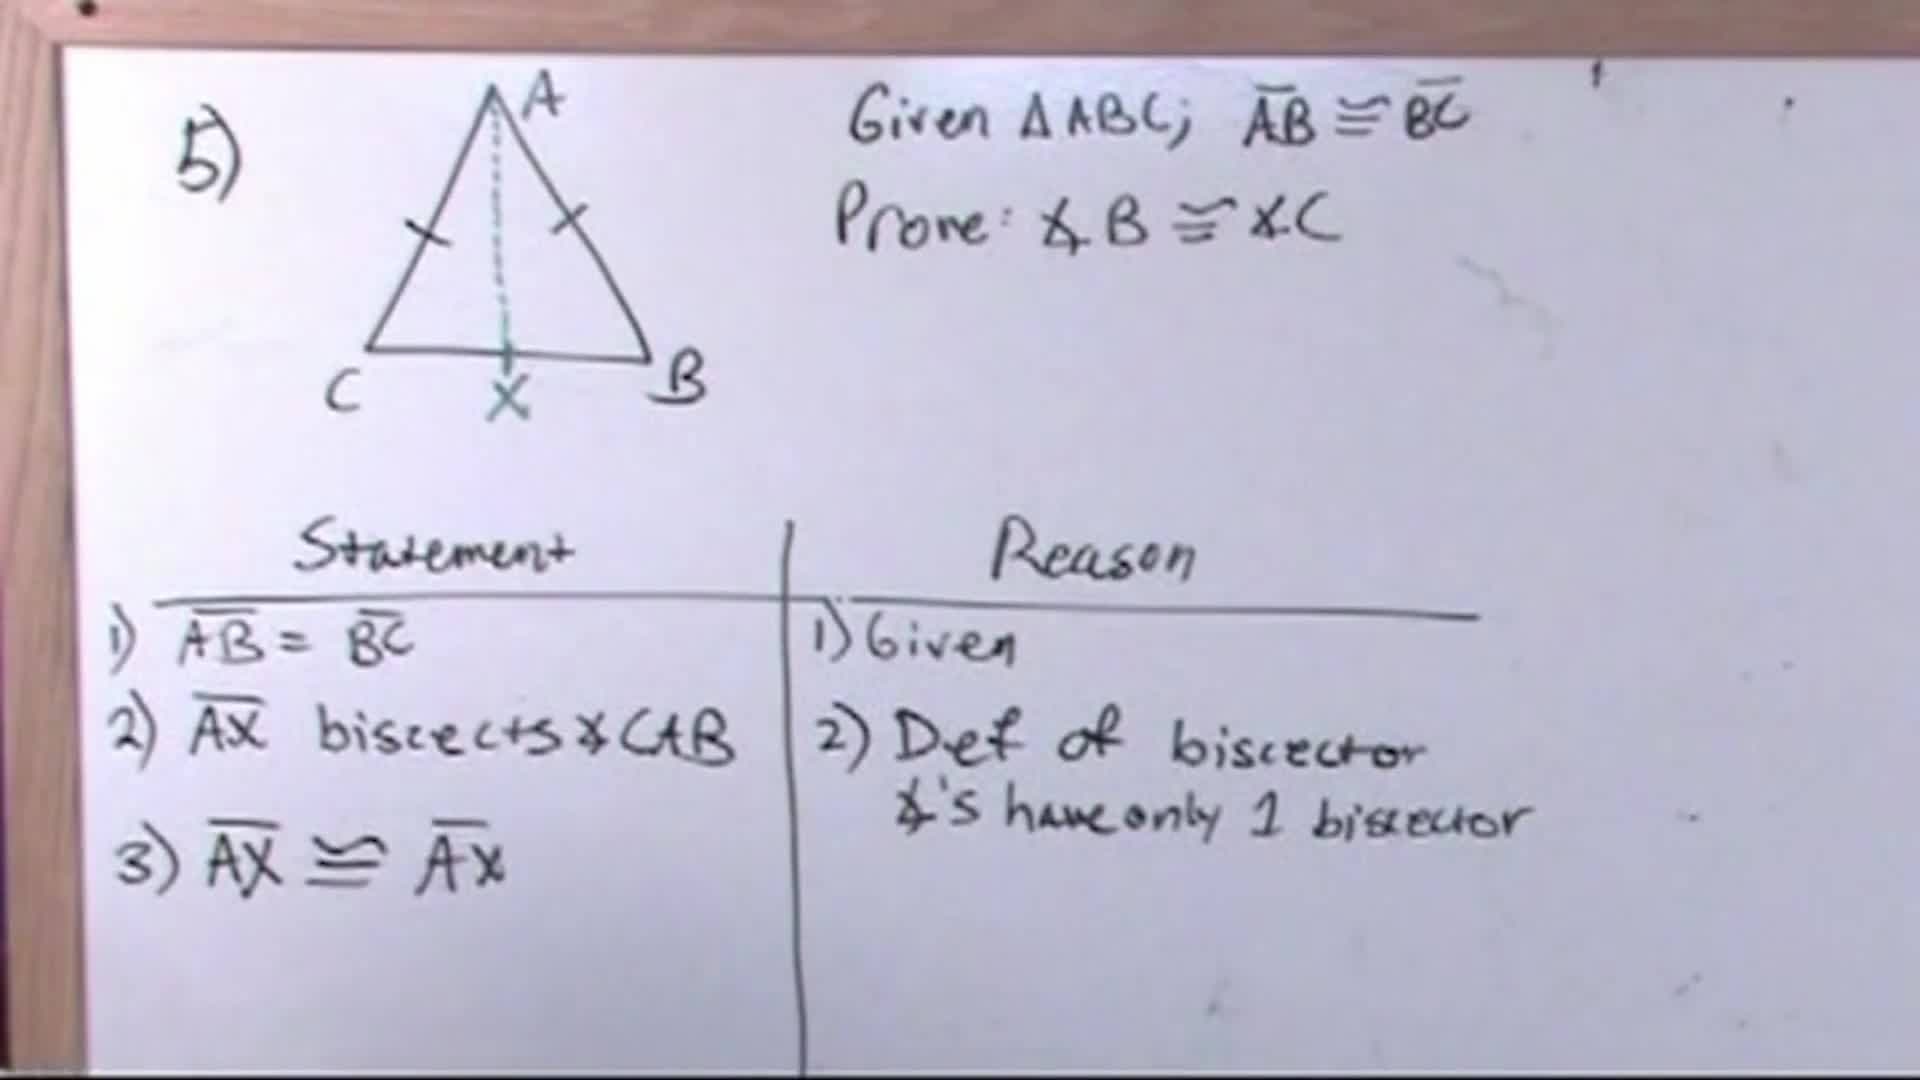 5)
A
C
X
B
Given ΔABC; A̅B̅ ≅ B̅C̅
Prove: ∡B ≅ ∡C
Statement
Reason
1) A̅B̅ = B̅C̅
1) Given
2) A̅X̅ biscects ∡CAB
2) Def of biscector
∡'s have only 1 biscector
3) A̅X̅ ≅ A̅X̅